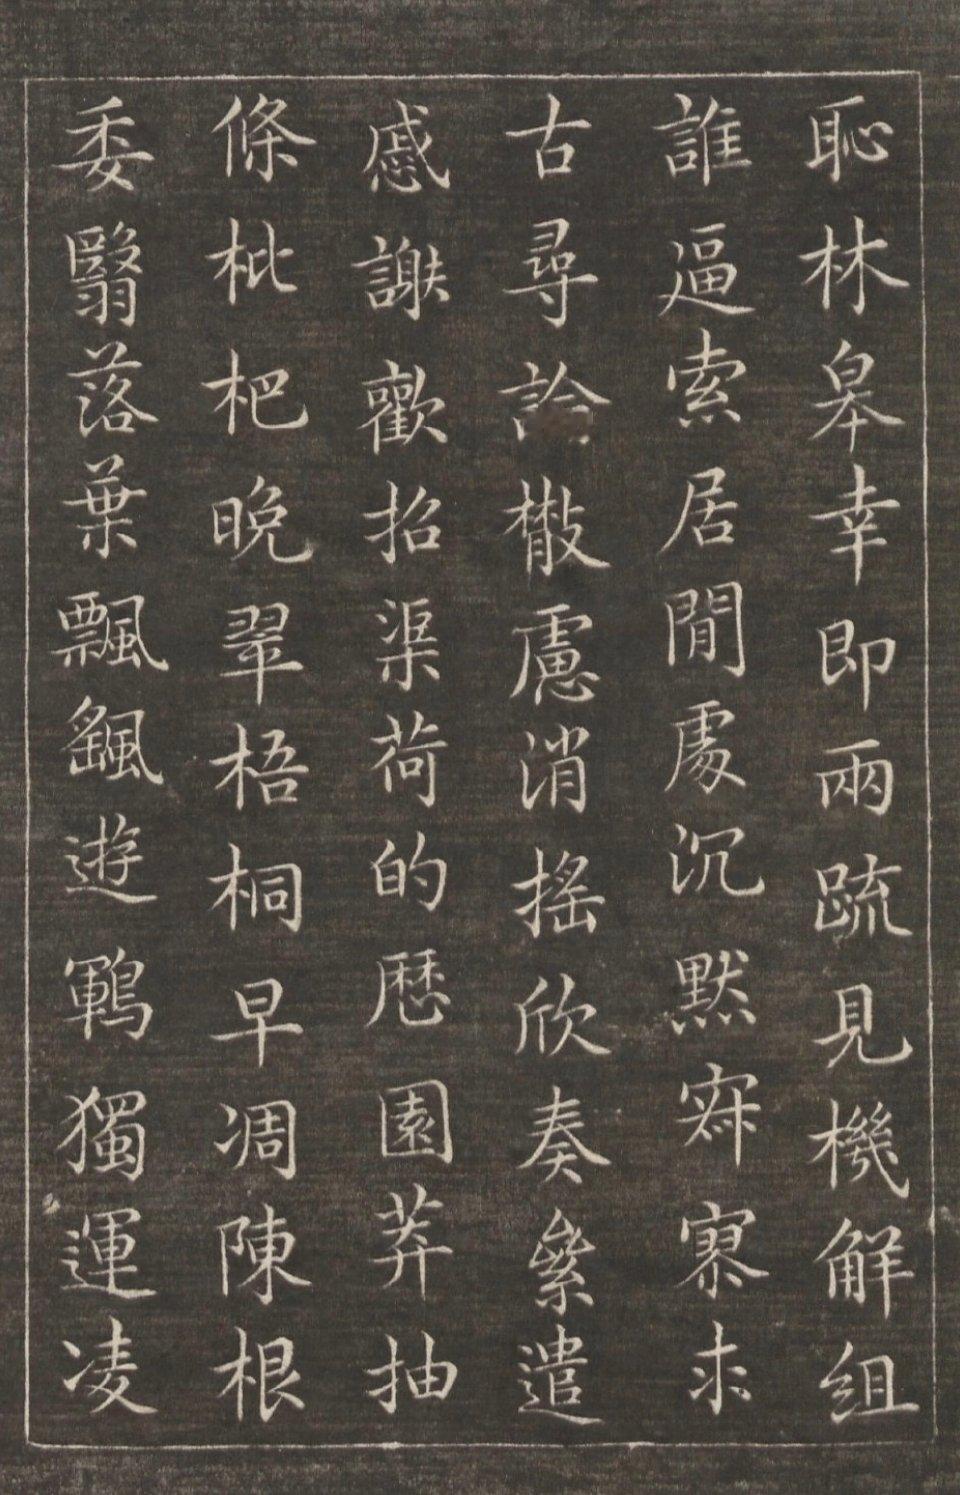 恥林皋幸即兩疏見機解組
誰逼索居閒處沉默寂寥求
古尋論散慮逍搖欣奏絫遣
慼謝歡招渠荷的歷園莽抽
條枇杷晚翠梧桐早凋陳根
委翳落葉飄颻遊鶤獨運凌